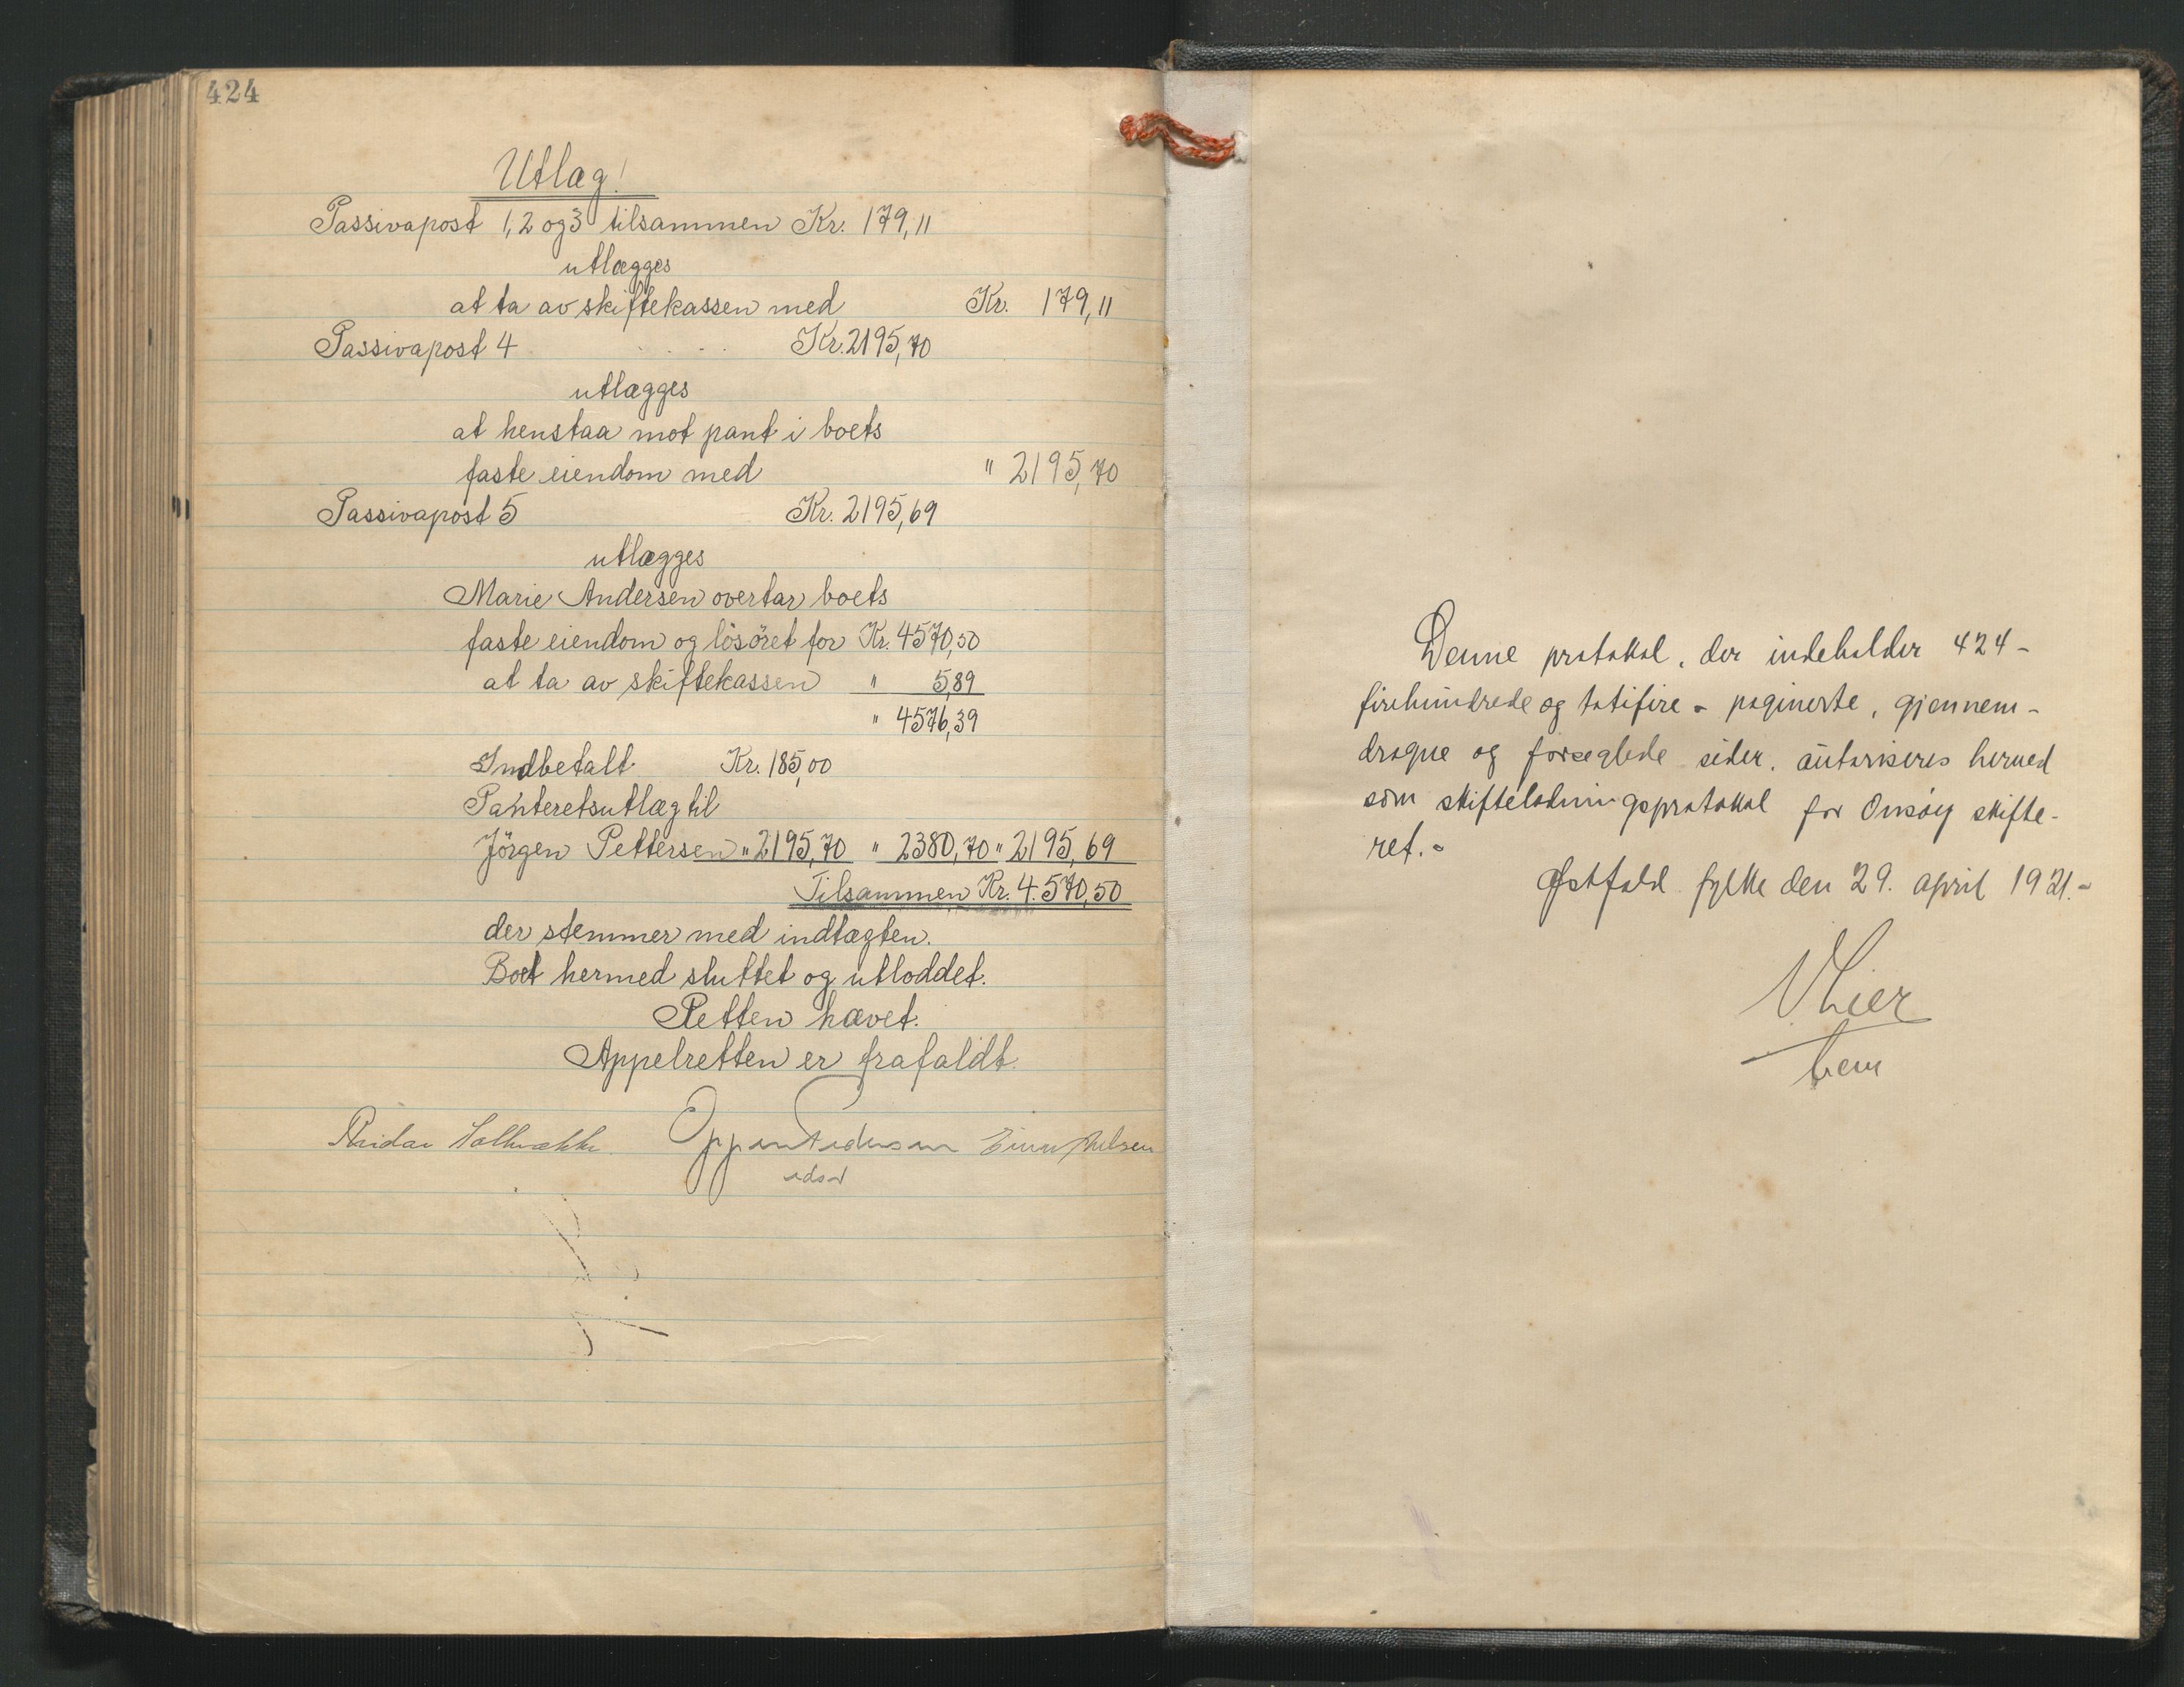 424
Utlæg!
Passivapost 1, 2 og 3 tilsammen Kr. 179,11
utlægges
at ta av skiftekassen med Kr. 179,11
Passivapost 4 . . . . Kr. 2195,70
utlægges
at henstaa mot pant i boets
faste eiendom med " 2195,70
Passivapost 5 Kr. 2195,69
utlægges
Marie Andersen overtar boets
faste eiendom og lösöret for Kr. 4570,50
at ta av skiftekassen " 5,89
" 4576,39
Indbetalt Kr. 185,00
Panteretsutlæg til
Jörgen Pettersen " 2195,70 " 2380,70 " 2195,69
Tilsammen Kr. 4.570,50
der stemmer med indtægten.
Boet hermed sluttet og utloddet.
Retten hævet.
Appelretten er frafaldt.
Reidar
Denne protokol, der indeholder 424 -
firehundrede og totifire - paginerte, gjennem-
dragne og forseglede sider, autoriseres herved
som skiftelodningsprotokol for Onsøy skifte-
ret. -
Østfold fylke den 29. april 1921. -
VLier